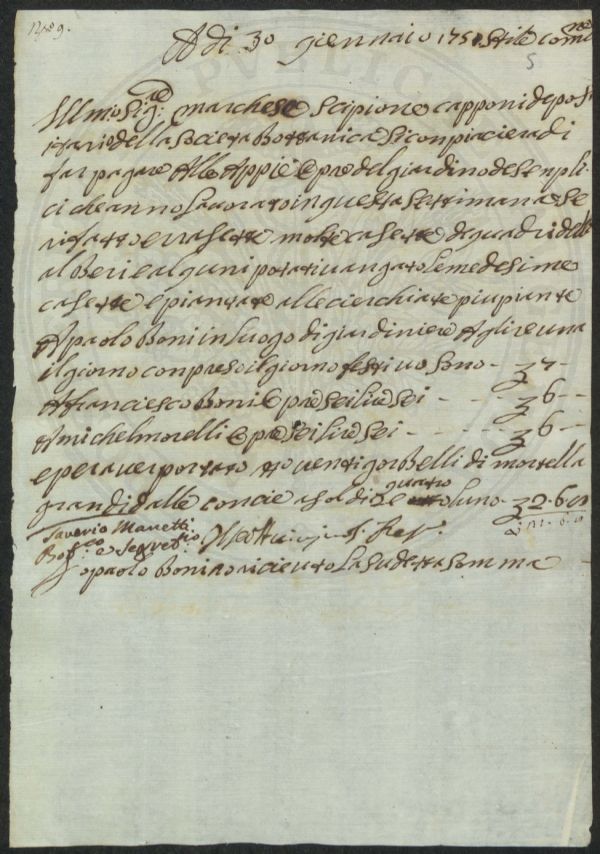 N.o 9.
A di 30 giennaio 1751 Stile Com.ne
5
Ill.mo Sig.re marchese scipione capponi depos
itario della Societa Bottanica si conpiaciera di
far pagare Alle Appie e pre del giardino de senpli
ci che anno Lavorato in questa settimana se
rifatto era sette molte casette di quadri delle
alberi e alquni portati vangato le medesime
casette e piantare alle cierchiate piu piante
A paolo Boni in luogo di giardiniere A lire una
il giorno conpreso il giorno festivo sono - 7 -
A franciesco Boni e pre sei lire sei - - - 6 - -
A michel morelli e pre sei lire sei - - - 6 - -
e per aver portato venti gorbelli di mortella
grandi dalle concie a soldi 2 e quatro luno - 2. 6. 8
21. 6. 8
Saverio Manetti
Bot.co e Segret.rio
Io paolo Boni o riciento La sudetta somma
PVBLIC